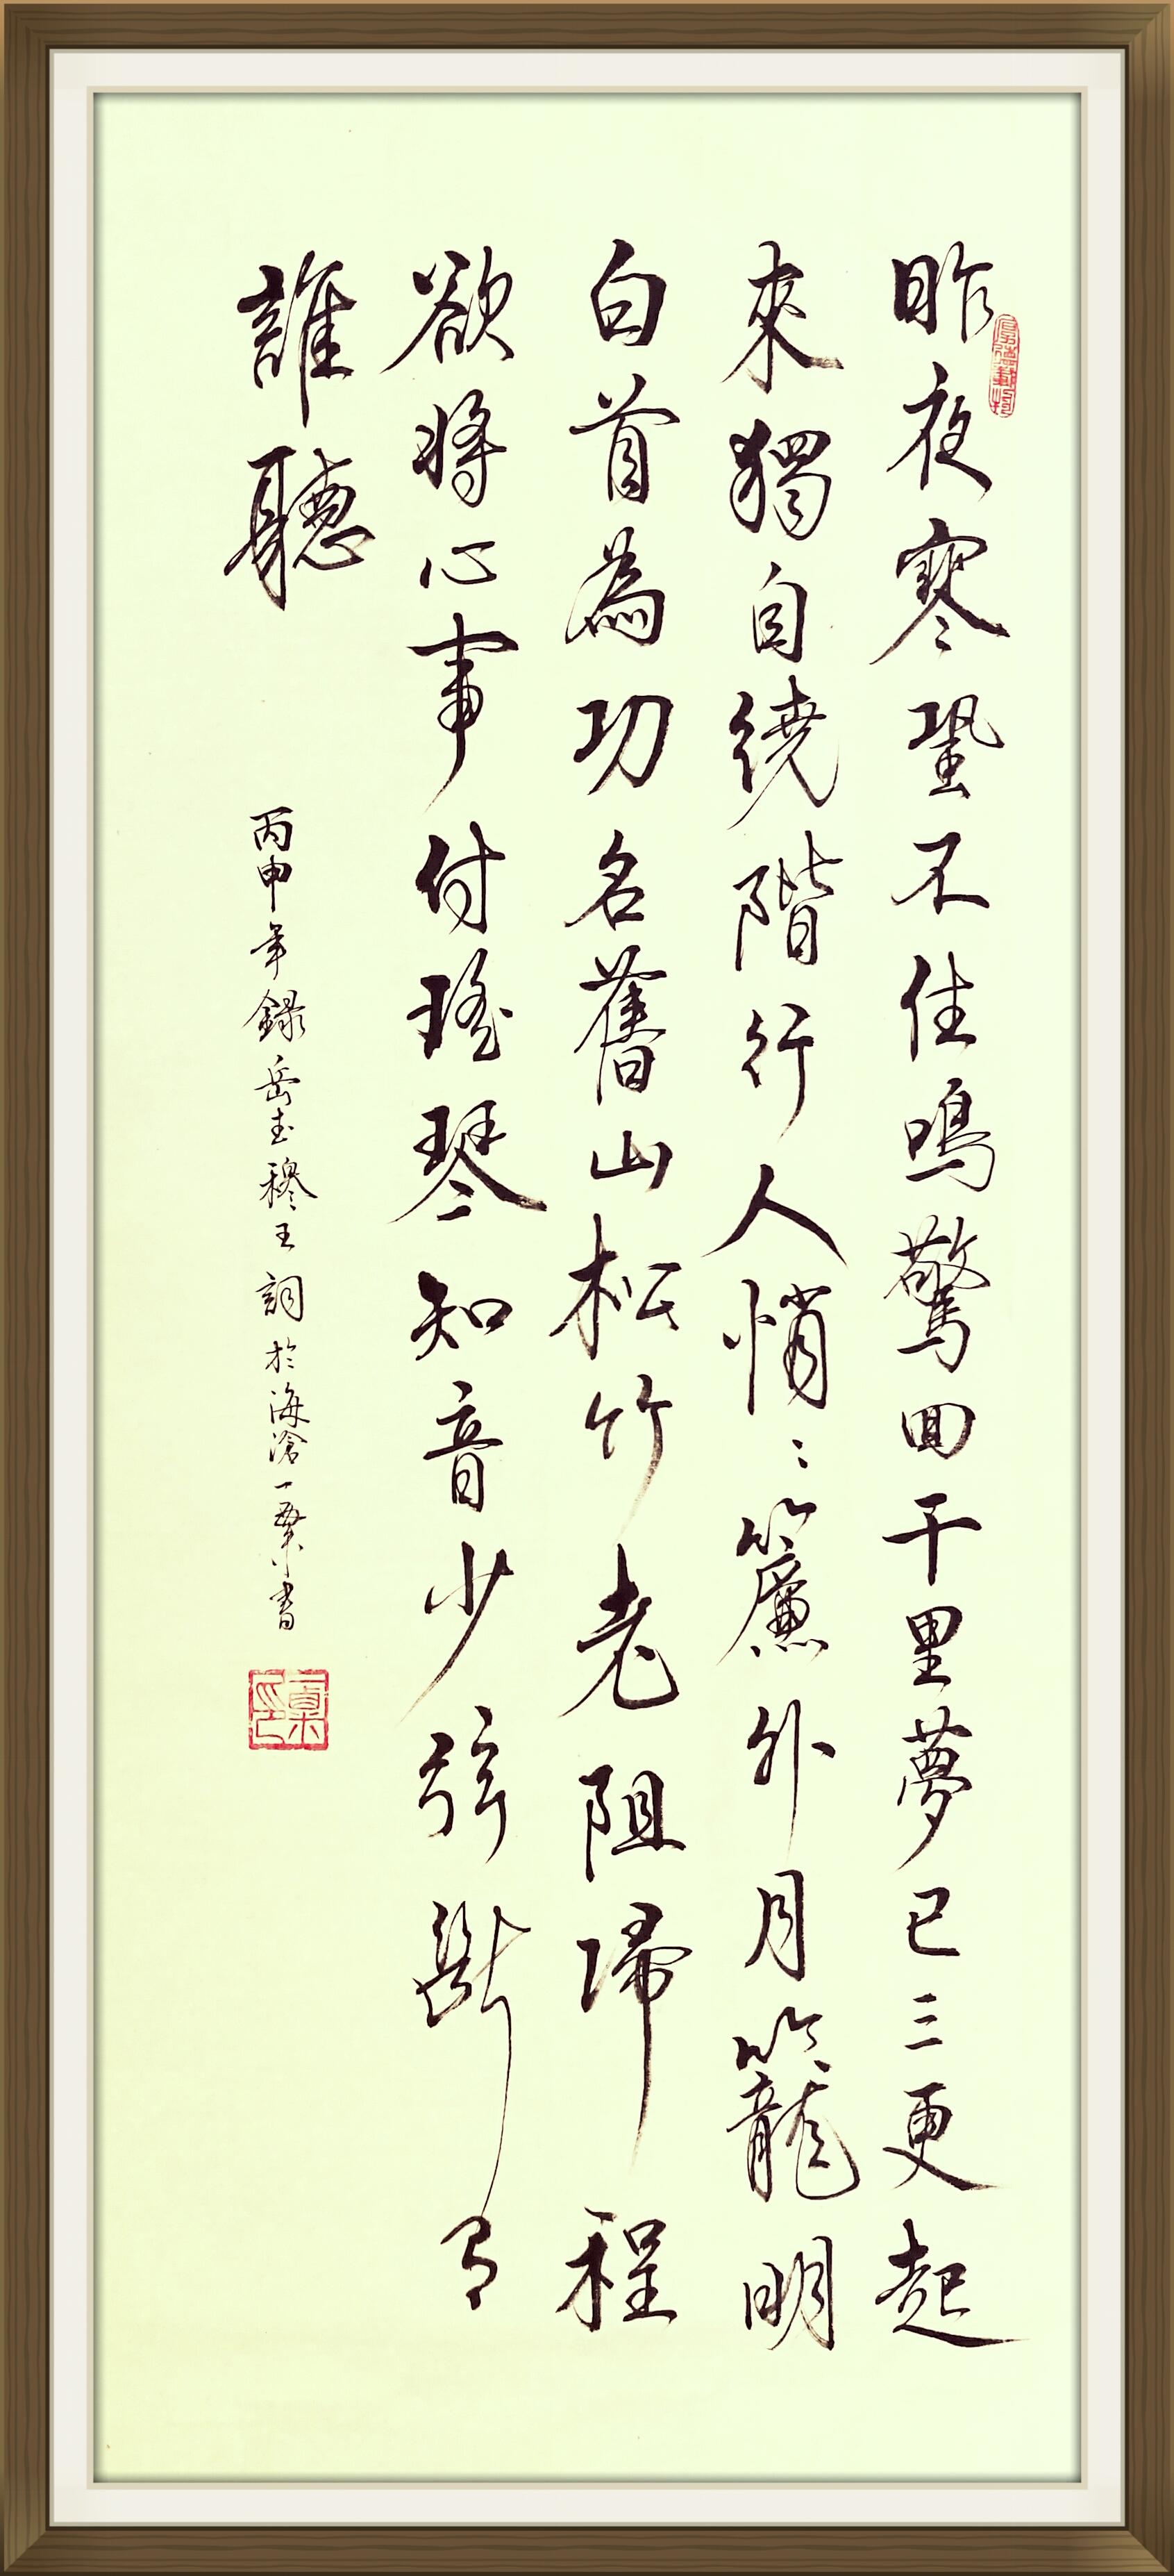 昨夜寒蛩不住鳴驚回千里夢已三更起
來獨自繞階行人悄〻簾外月籠明
白首為功名舊山松竹老阻歸程
欲將心事付瑤琴知音少弦斷有
誰聽
丙申年錄岳武穆王詞於海滄一稟書
厚德載物